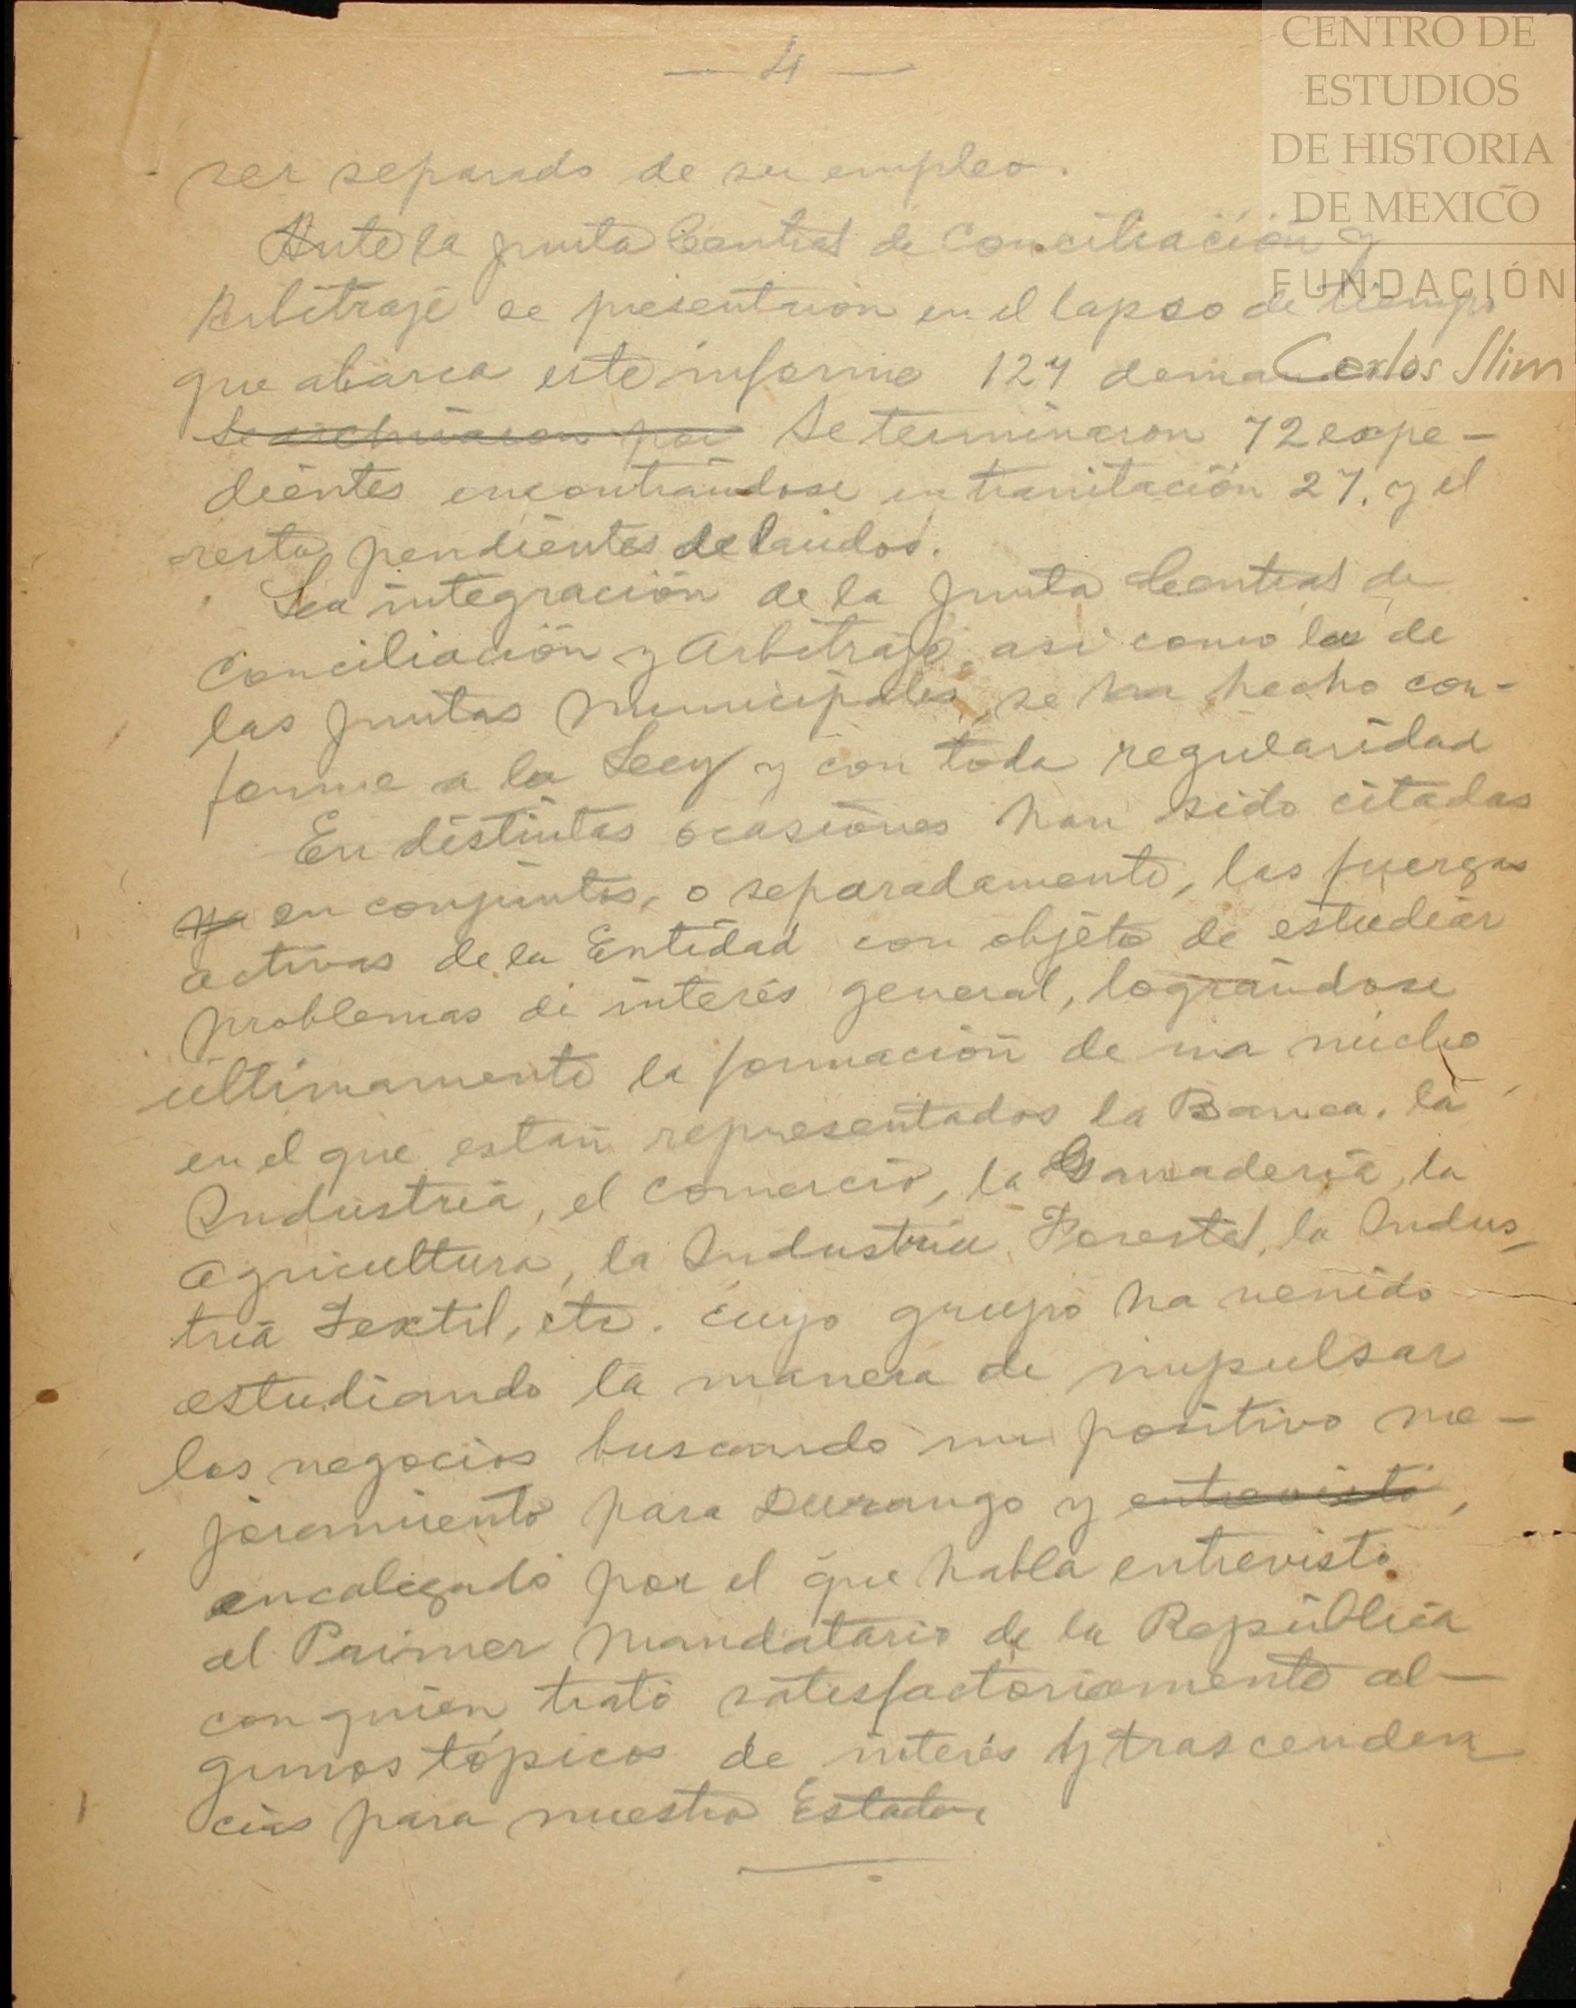 CENTRO DE
ESTUDIOS
DE HISTORIA
DE MEXICO
FUNDACIÓN
Carlos Slim
— 4 —
ser separado de su empleo.
Ante la Junta Central de Conciliación y
Arbitraje se presentaron en el lapso de tiempo
que abarca este informe 127
se archivaron por Se terminaron 72 expe-
dientes encontrándose en tramitación 27. y el
resto, pendientes de laudos.
La integración de la Junta Central de
Conciliación y Arbitraje, asi como la de
las Juntas Municipales, se ha hecho con-
forme a la Ley y con toda regularidad
En distintas ocasiones han sido citadas
ya en conjuntos, o separadamente, las fuerzas
activas de la Entidad con objeto de estudiar
problemas de interés general, lográndose
últimamente la formación de un núcleo
en el que están representados la Banca, la
Industria, el Comercio, la Ganadería, la
Agricultura, la Industria Forestal, la Indus-
tria Textil, etc. cuyo grupo ha venido
estudiando la manera de impulsar
los negocios buscando un positivo me-
joramiento para Durango y entrevistó,
encabezado por el que habla entrevistó
al Primer Mandatario de la República
con quien trató satisfactoriamente al-
gunos tópicos de interés y trascenden
cias para nuestro Estado.